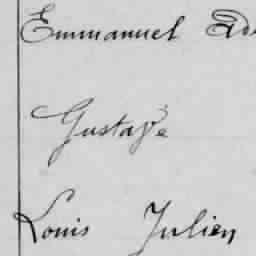 Emmanuel
Gustave
Louis Julien